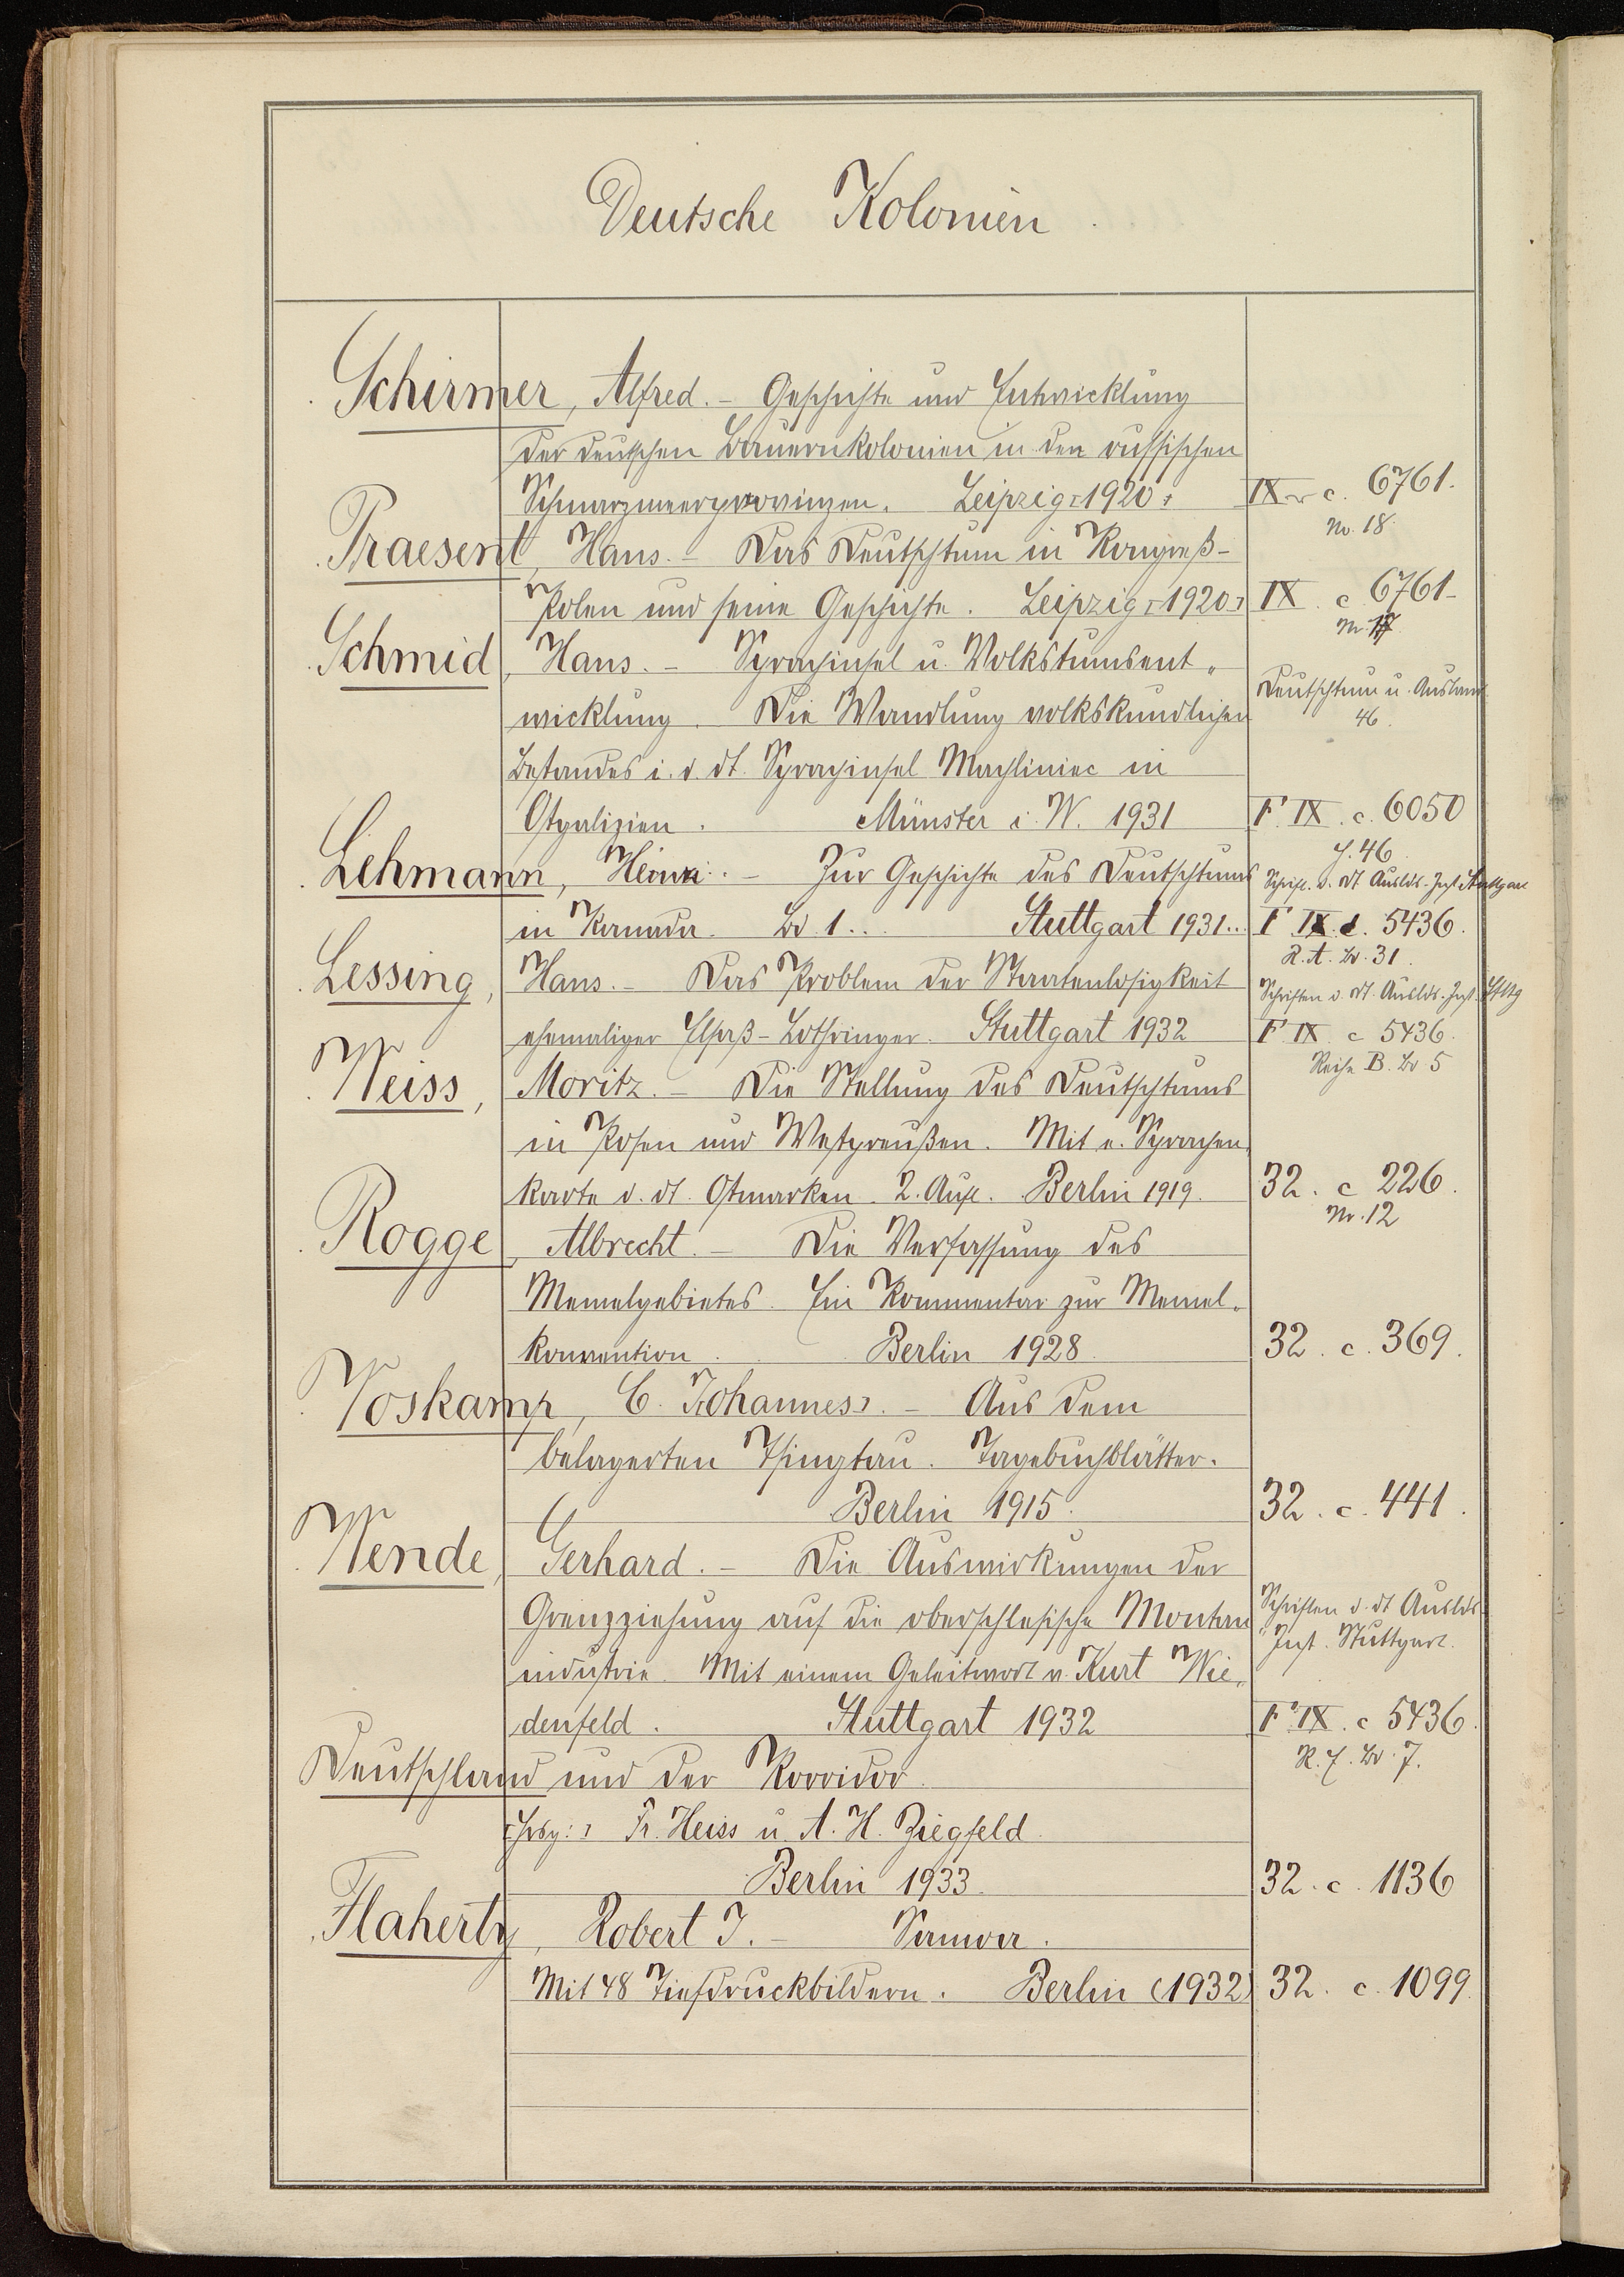 Deutsche Kolonien.
Schirmer, Alfred. – Geschichte und Entwicklung
der deutschen Bauernkolonien in den russischen
Schwarzmeerprovinzen. Leipzig [1920] IX c. 6761.
Nr. 18.
Praesent, Hans. – Das Deutschtum in Kongreß-
Polen und seine Geschichte. Leipzig [1920] IX. c 6761
Nr. 17.
Schmid, Hans. – Sprachinsel u. Volkstumsent-
Deutschtum u. Ausland
wicklung. Die Wandlung volkskundlichen
46.
Bestandes i. d. dt. Sprachinsel Machliniec in
Ostgalizien. Münster i. W. 1931 F. IX. c. 6050
H. 46
Lehmann, Heinz. – Zur Geschichte des Deutschtums
Schrift. d. dt Auslds-Inst Stuttgart
in Kanada. Bd 1... Stuttgart 1931.. F IX. c. 5436.
R. A. Bd. 31.
Lessing, Hans. – Das Problem der Staatenlosigkeit
Schriften d. dt. Auslds.-Inst. Sttttg
ehemaliger Elsaß-Lothringer. Stuttgart 1932 F IX c 5436.
Reihe B. Bd 5
Weiss, Moritz. – Die Stellung des Deutschtums
in Posen und Westpreußen. Mit e. Sprachen-
karte d. dt. Ostmarken. 2. Aufl. Berlin 1919. 32. c 226.
Nr. 12
Rogge, Albrecht. – Die Verfassung des
Memelgebietes. Ein Kommentar zur Memel-
konvention. Berlin 1928. 32. c. 369.
Voskamp, C. J[ohannes]. – Aus dem
belagerten Tsingtau. Tagebuchblätter.
Berlin 1915. 32. c. 441.
Wende, Gerhard. – Die Auswirkungen der
Grenzziehung auf die oberschlesische Montan
Schriften d. dt Auslds-
Inst. Stuttgart.
industrie. Mit einem Geleitwort v. Kurt Wie-
denfeld. Stuttgart 1932 F IX. c 5436.
Bd. 7.
Deutschland und der Korridor.
[Hrsg:] Fr. Heiss u. A. H. Ziegfeld.
Berlin 1933. 32. c. 1136
Flaherty, Robert J. – Samoa.
Mit 48 Tiefdruckbildern. Berlin (1932) 32. c. 1099.